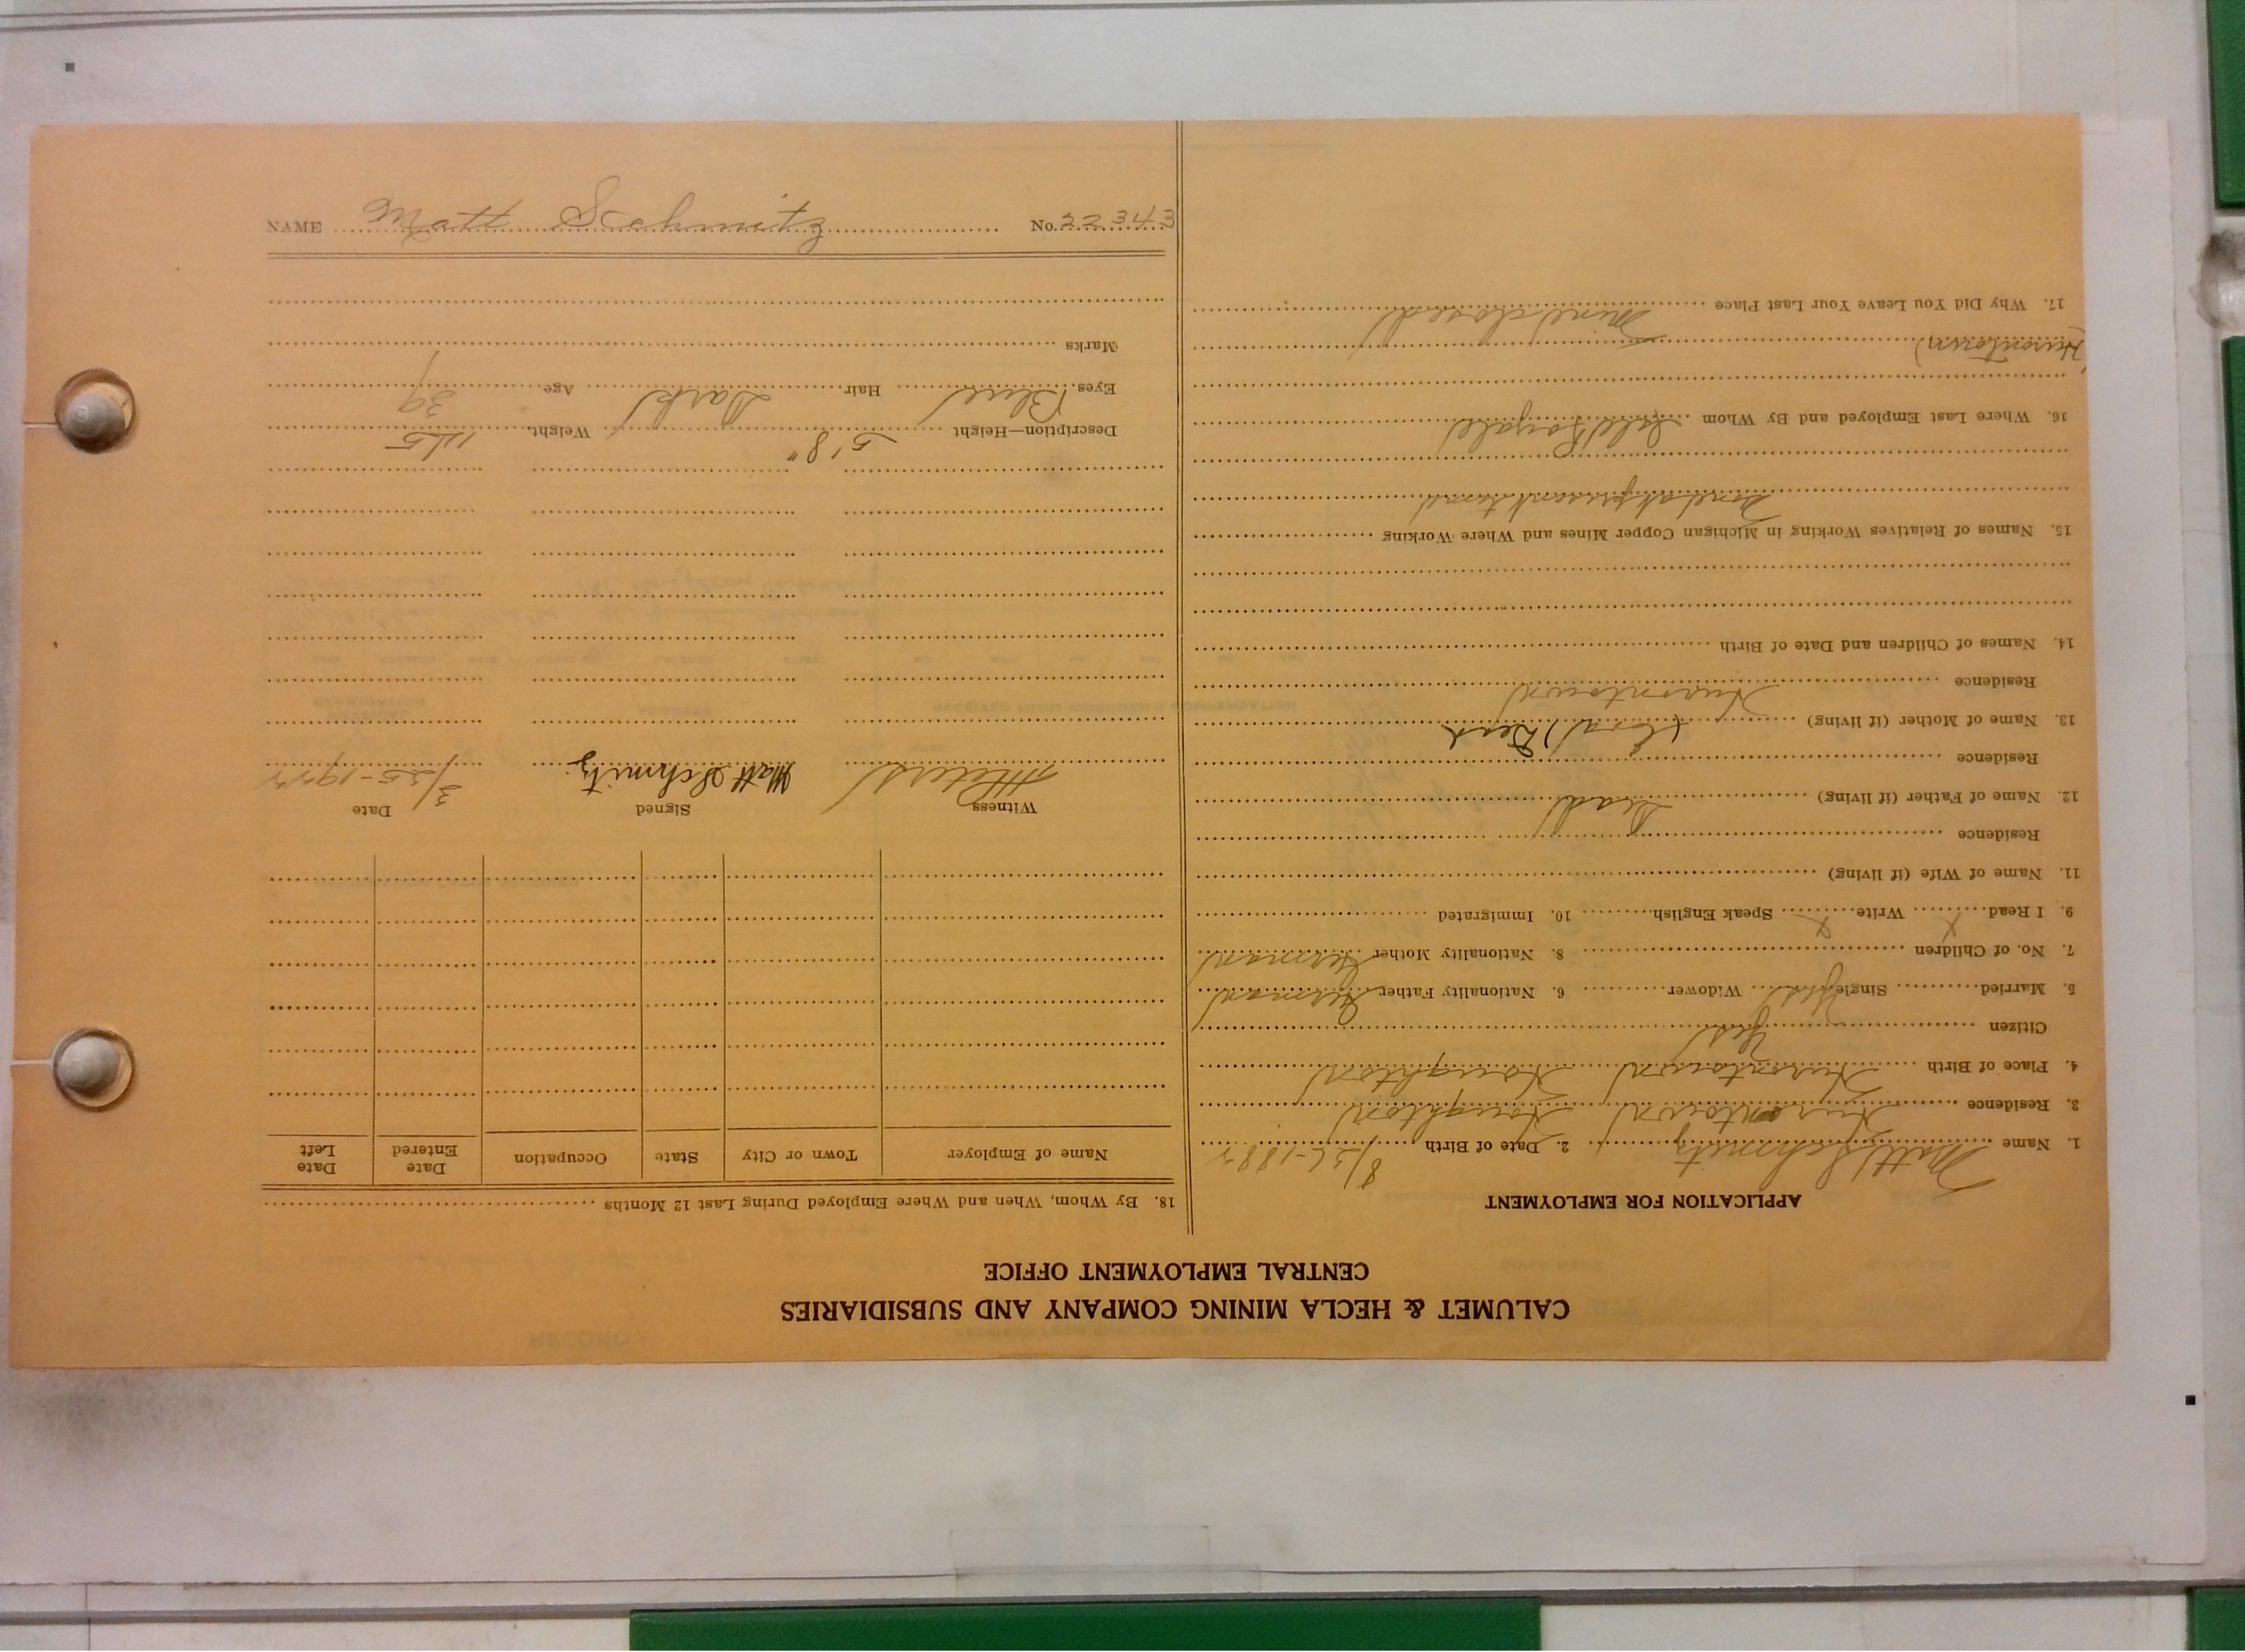 CALUMET & HECLA MINING COMPANY AND SUBSIDIARIES
CENTRAL EMPLOYMENT OFFICE
APPLICATION FOR EMPLOYMENT
1. Name Matt Schmitz 2. Date of Birth
3. Residence Hurontown Houghton
4. Place of Birth Hurontown Houghton
Citizen Yes
5. Married Single Yes Widower 6. Nationality Father German
7. No. of Children 8. Nationality Mother German
9. I Read x Write x Speak English 10. Immigrated
11. Name of Wife (if living)
Residence
12. Name of Father (if living) Dead
Residence
13. Name of Mother (if living) Dead
Residence Hurontown
14. Names of Children and Date of Birth
15. Names of Relatives Working in Michigan Copper Mines and Where Working
None at present time
16. Where Last Employed and By Whom Isle Royale
(Hurontown)
17. Why Did You Leave Your Last Place Mine closed
18. By Whom, When and Where Employed During Last 12 Months
Name of Employer Town or City State Occupation Date Entered Date Left
Witness Signed Date
Matt Schmitz 3/25-1922
Description—Height 5' 8" Weight 145
Eyes Blue Hair Dark Age 39
Marks
NAME Matt Schmitz No. 22343